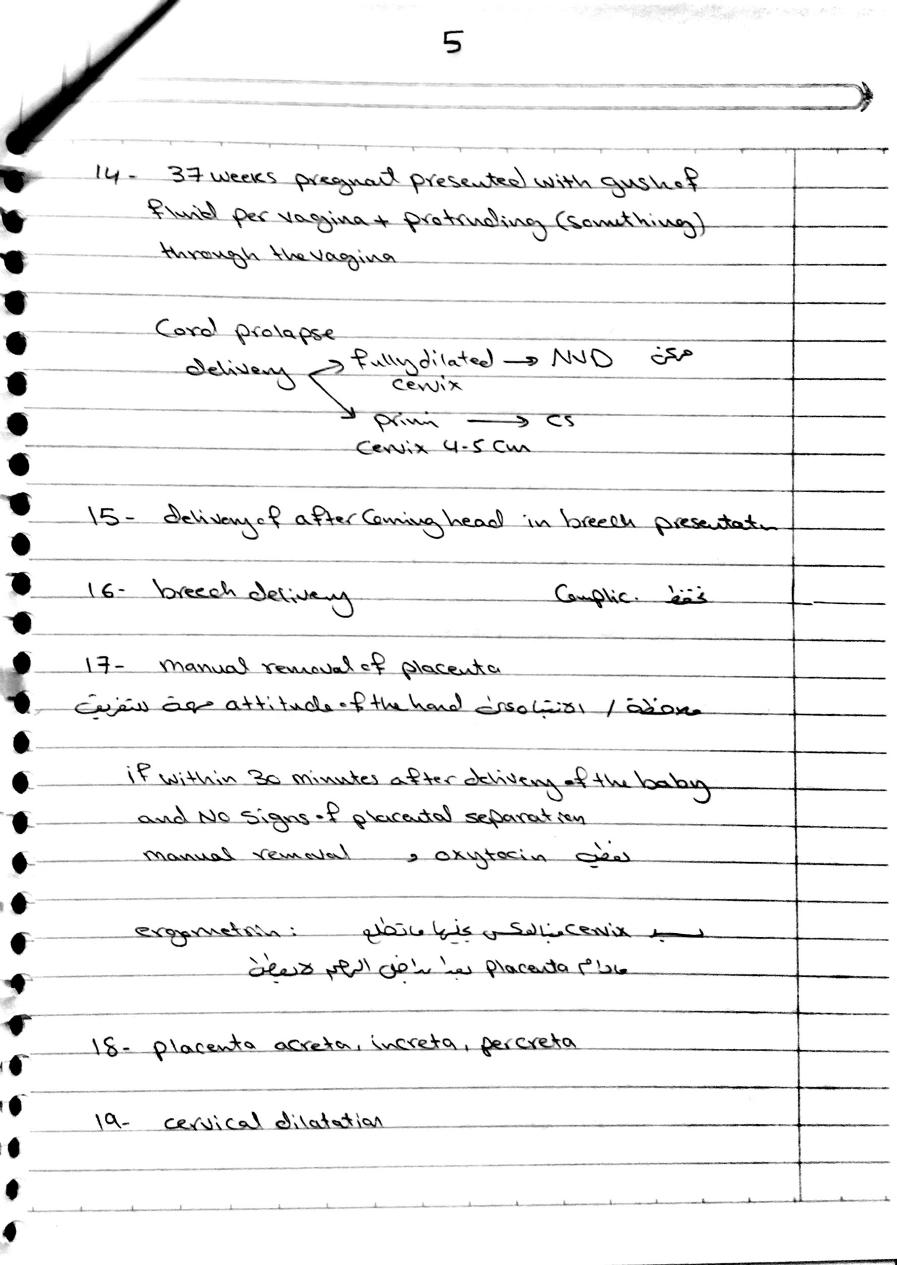 5
14- 37 weeks pregnant presented with gush of
fluid per vagina + protruding (something)
through the vagina
Cord prolapse
delivery → fully dilated → NVD ممكن
cervix
prim → CS
Cervix 4-5 Cm
15- delivery of after Coming head in breech presentatn
16- breech delivery Complic. فقط
17- manual removal of placenta
attitude of the hand مهمة
if within 30 minutes after delivery of the baby
and No signs of placental separation
manual removal و oxytocin نعطيه
ergometrin: cervix
مادام placenta بعدها داخل الرحم لا
18- placenta acreta, increta, percreta
19- cervical dilatation